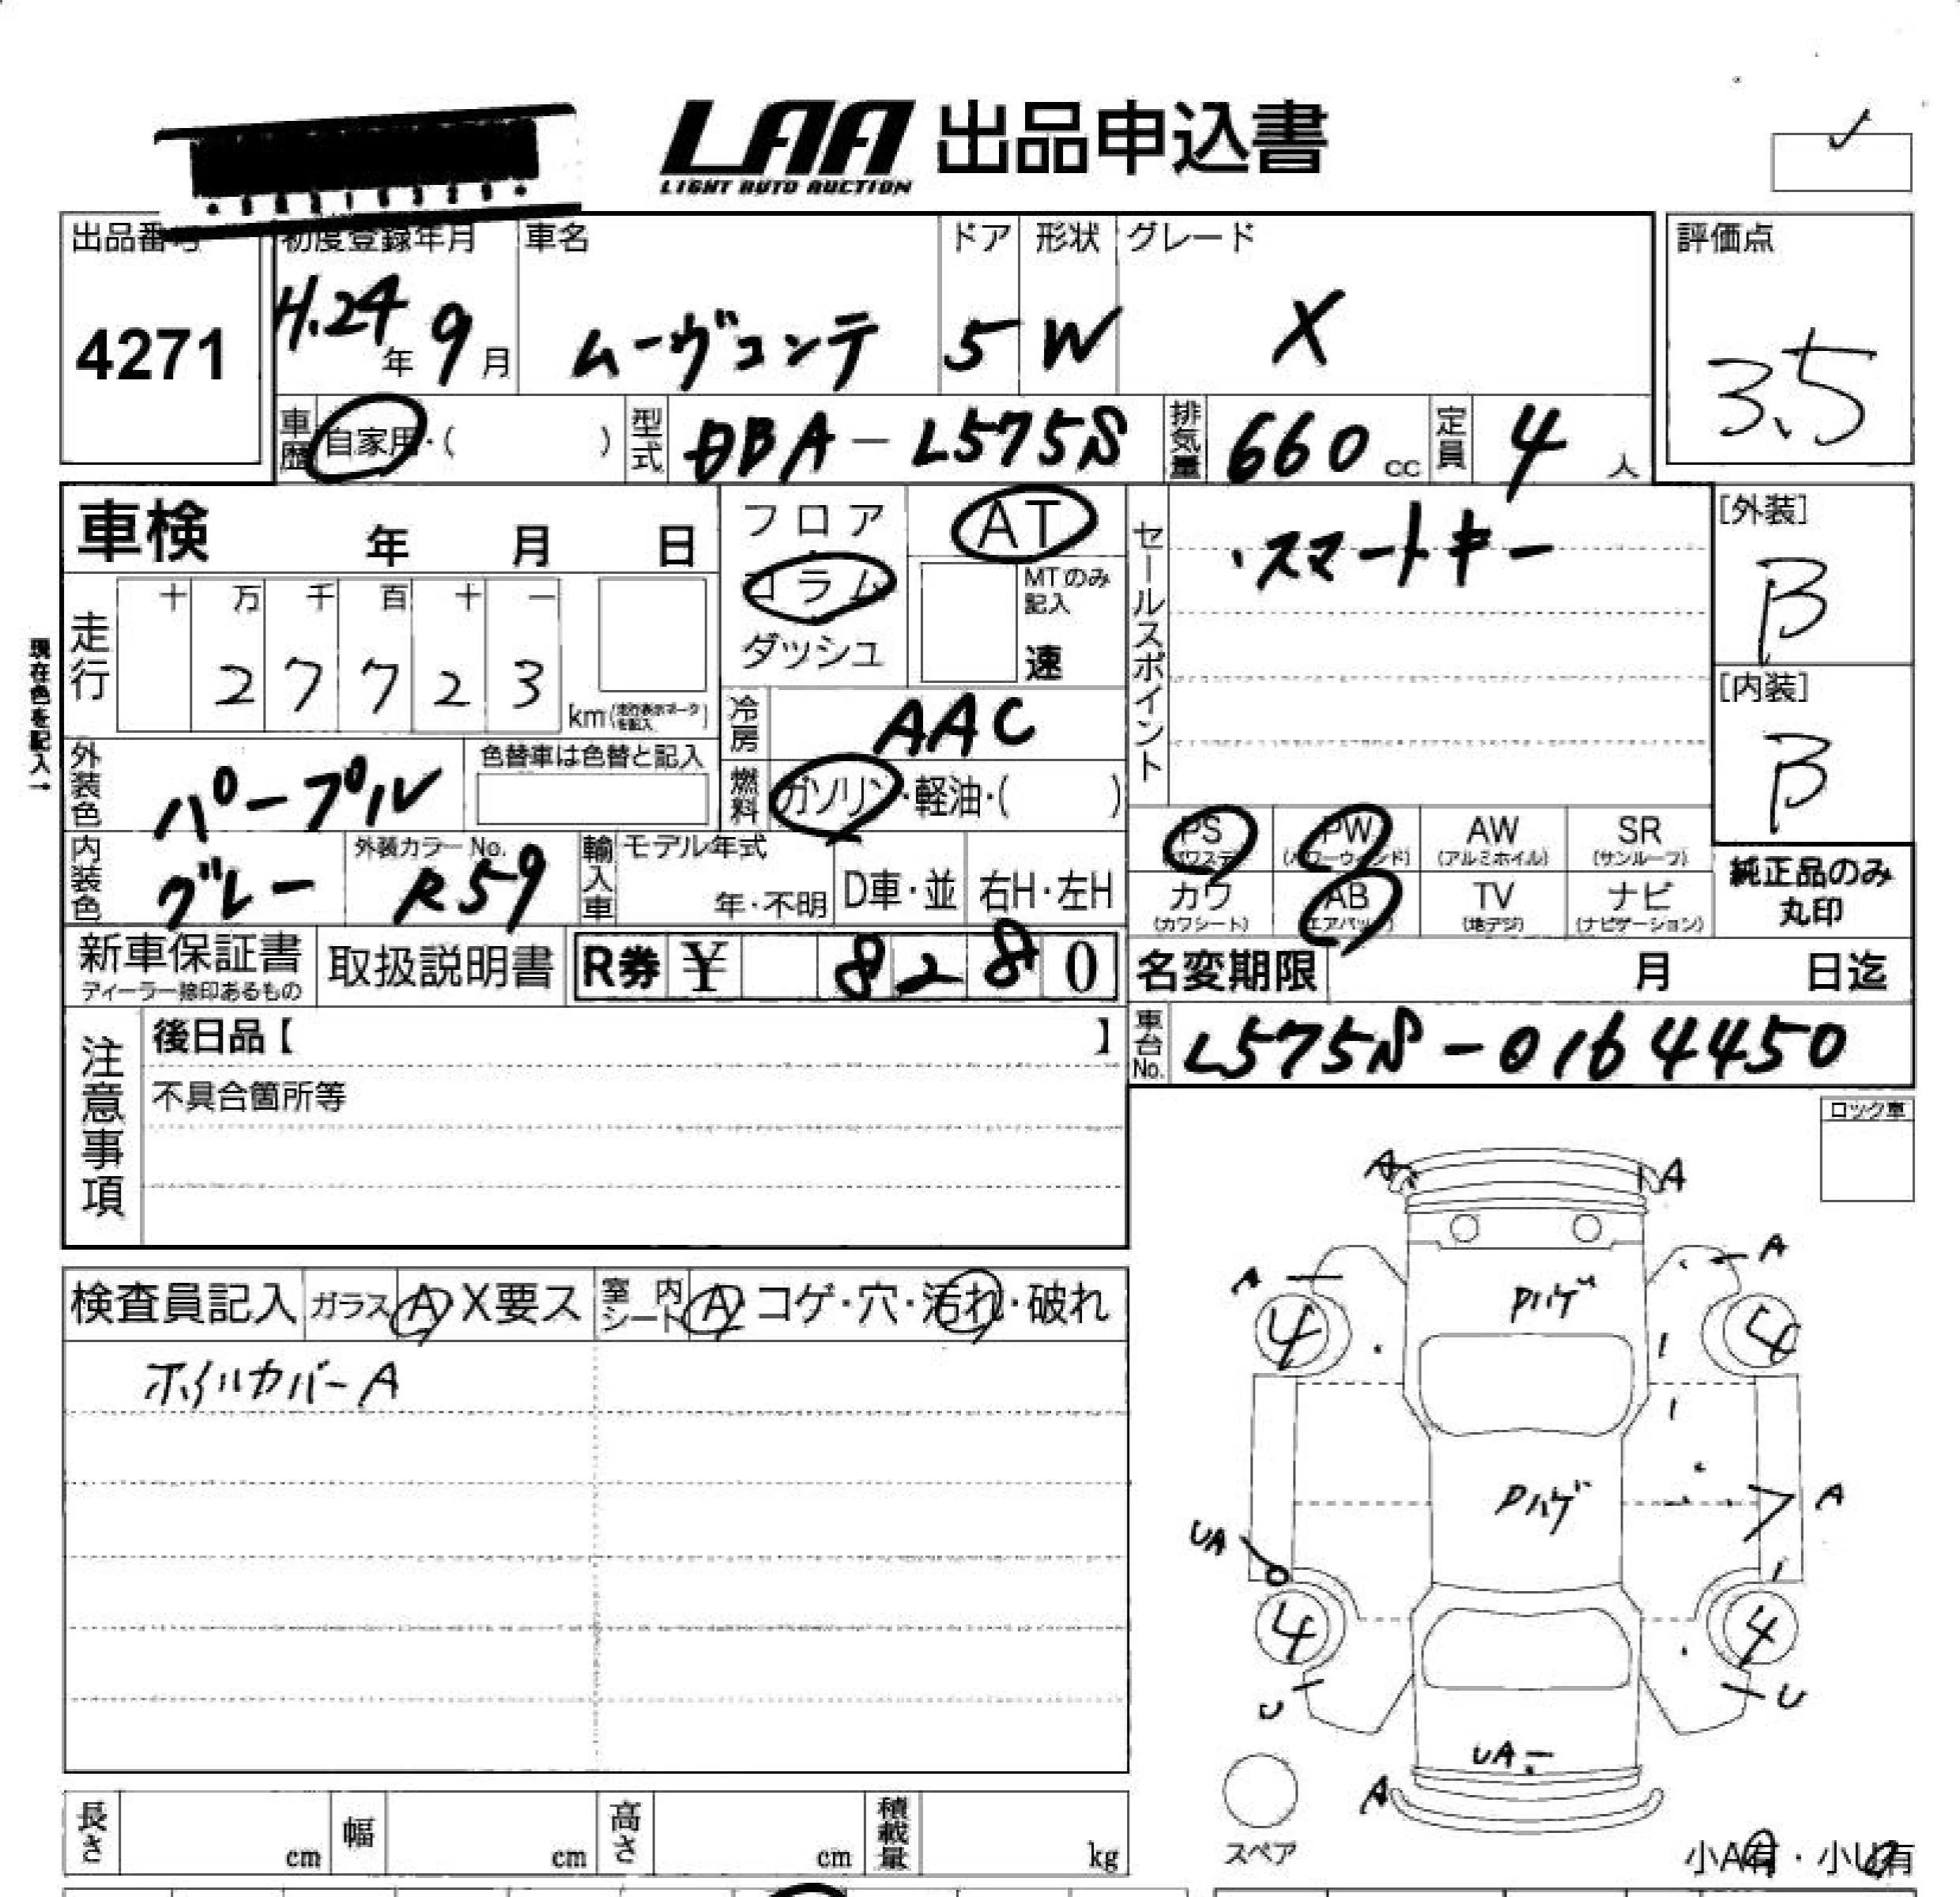 LAA 出品申込書
LIGHT AUTO AUCTION
出品番号 初度登録年月 車名 ドア 形状 グレード 評価点
4271 H.24年 9月 ムーヴコンテ 5 W X 3.5
車歴 自家用・( ) 型式 DBA-L575S 排気量 660 cc 定員 4人
車検 年 月 日
フロア AT
コラム MTのみ記入
ダッシュ 速
セールスポイント ・スマートキー
[外装]
B
[内装]
B
現在色を記入→
走行 十 万 千 百 十 一
2 7 7 2 3 km
冷房 AAC
外装色 パープル 色替車は色替と記入
燃料 ガソリン・軽油・( )
内装色 グレー 外装カラーNo. R59
輸入車 モデル年式 年・不明 D車・並 右H・左H
PS (パワステ) PW (パワーウィンド) AW (アルミホイル) SR (サンルーフ)
カワ (カワシート) AB (エアバッグ) TV (地デジ) ナビ (ナビゲーション)
純正品のみ
丸印
新車保証書 ディーラー捺印あるもの 取扱説明書 R券 ¥ 8 2 8 0
名変期限 月 日迄
注意事項 後日品【 】
車台No. L575S-0164450
不具合箇所等
ロック車
検査員記入 ガラス A X要ス 室内シート A コゲ・穴・汚れ・破れ
ホイルカバーA
A A
A A
Pハゲ
4 4
Pハゲ
A
UA
4 4
U U
UA
A
スペア
小A有・小U有
長さ cm 幅 cm 高さ cm 積載量 kg